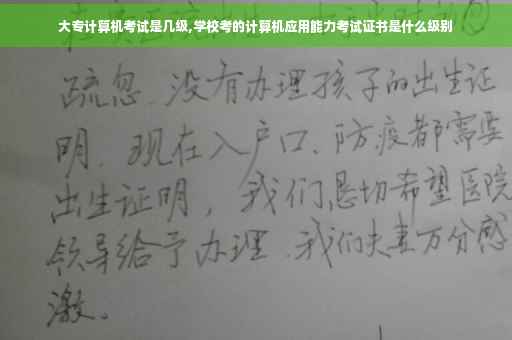 大专计算机考试是几级,学校考的计算机应用能力考试证书是什么级别
疏忽、没有办理孩子的出生证
明、现在入户口、防疫都需要
出生证明，我们恳切希望医院
领导给予办理、我们夫妻万分感
激。